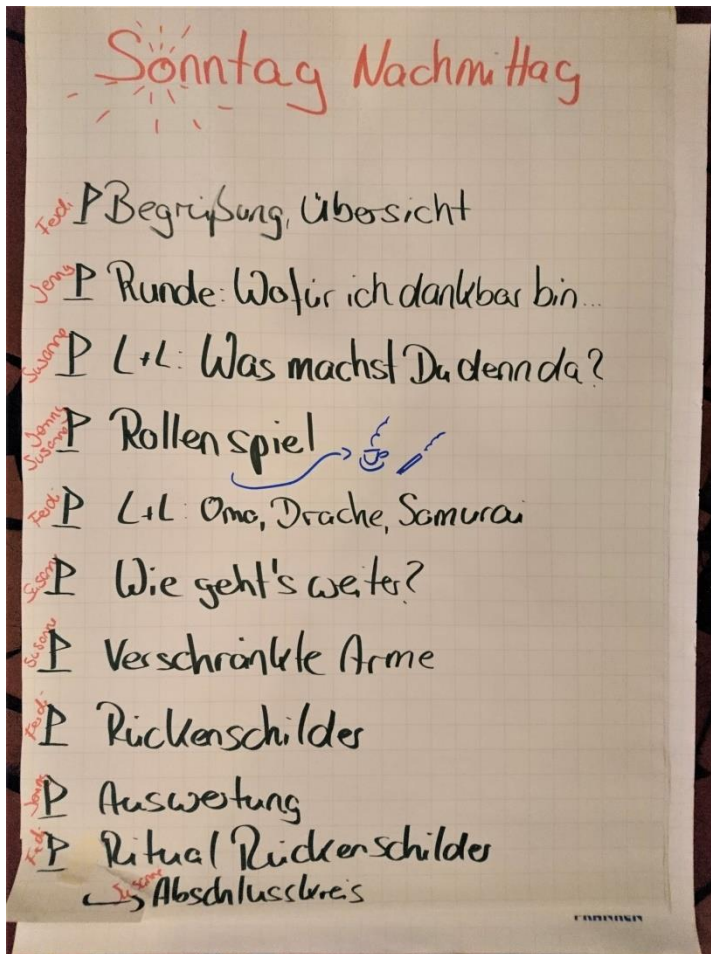 Sonntag Nachmittag
Ferdi Begrüßung, Übersicht
Jenny Runde: Wofür ich dankbar bin...
Susanne L+L: Was machst Du denn da?
Susanne Rollenspiel
Ferdi L+L: Oma, Drache, Samurai
Susanne Wie geht's weiter?
Susanne Verschränkte Arme
Ferdi Rückenschilder
Auswertung
Ferdi Ritual Rückenschilder
Susanne Abschlusskreis